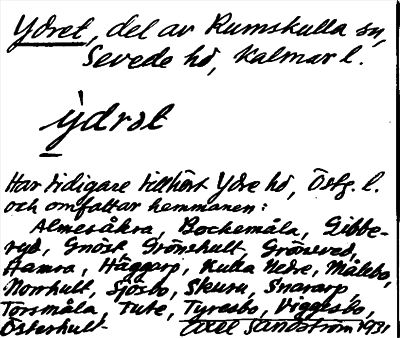 Ydret, del av Rumskulla sn,
Sevede hd, Kalmar l.
ỳdrət
Har tidigare tillhört Ydre hd, Östg. l.
och omfattar hemmanen:
Almesåkra, Bockemåla, Gibbe-
ryd, Gnöst, Grönshult, Grönsved,
Hamra, Häggarp, Kulla Nedre, Målebo,
Norrhult, Sjösbo, Skuru, Snararp
Torsmåla, Tute, Tyresbo, Viggesbo,
Österhult. Axel Sandström 1931